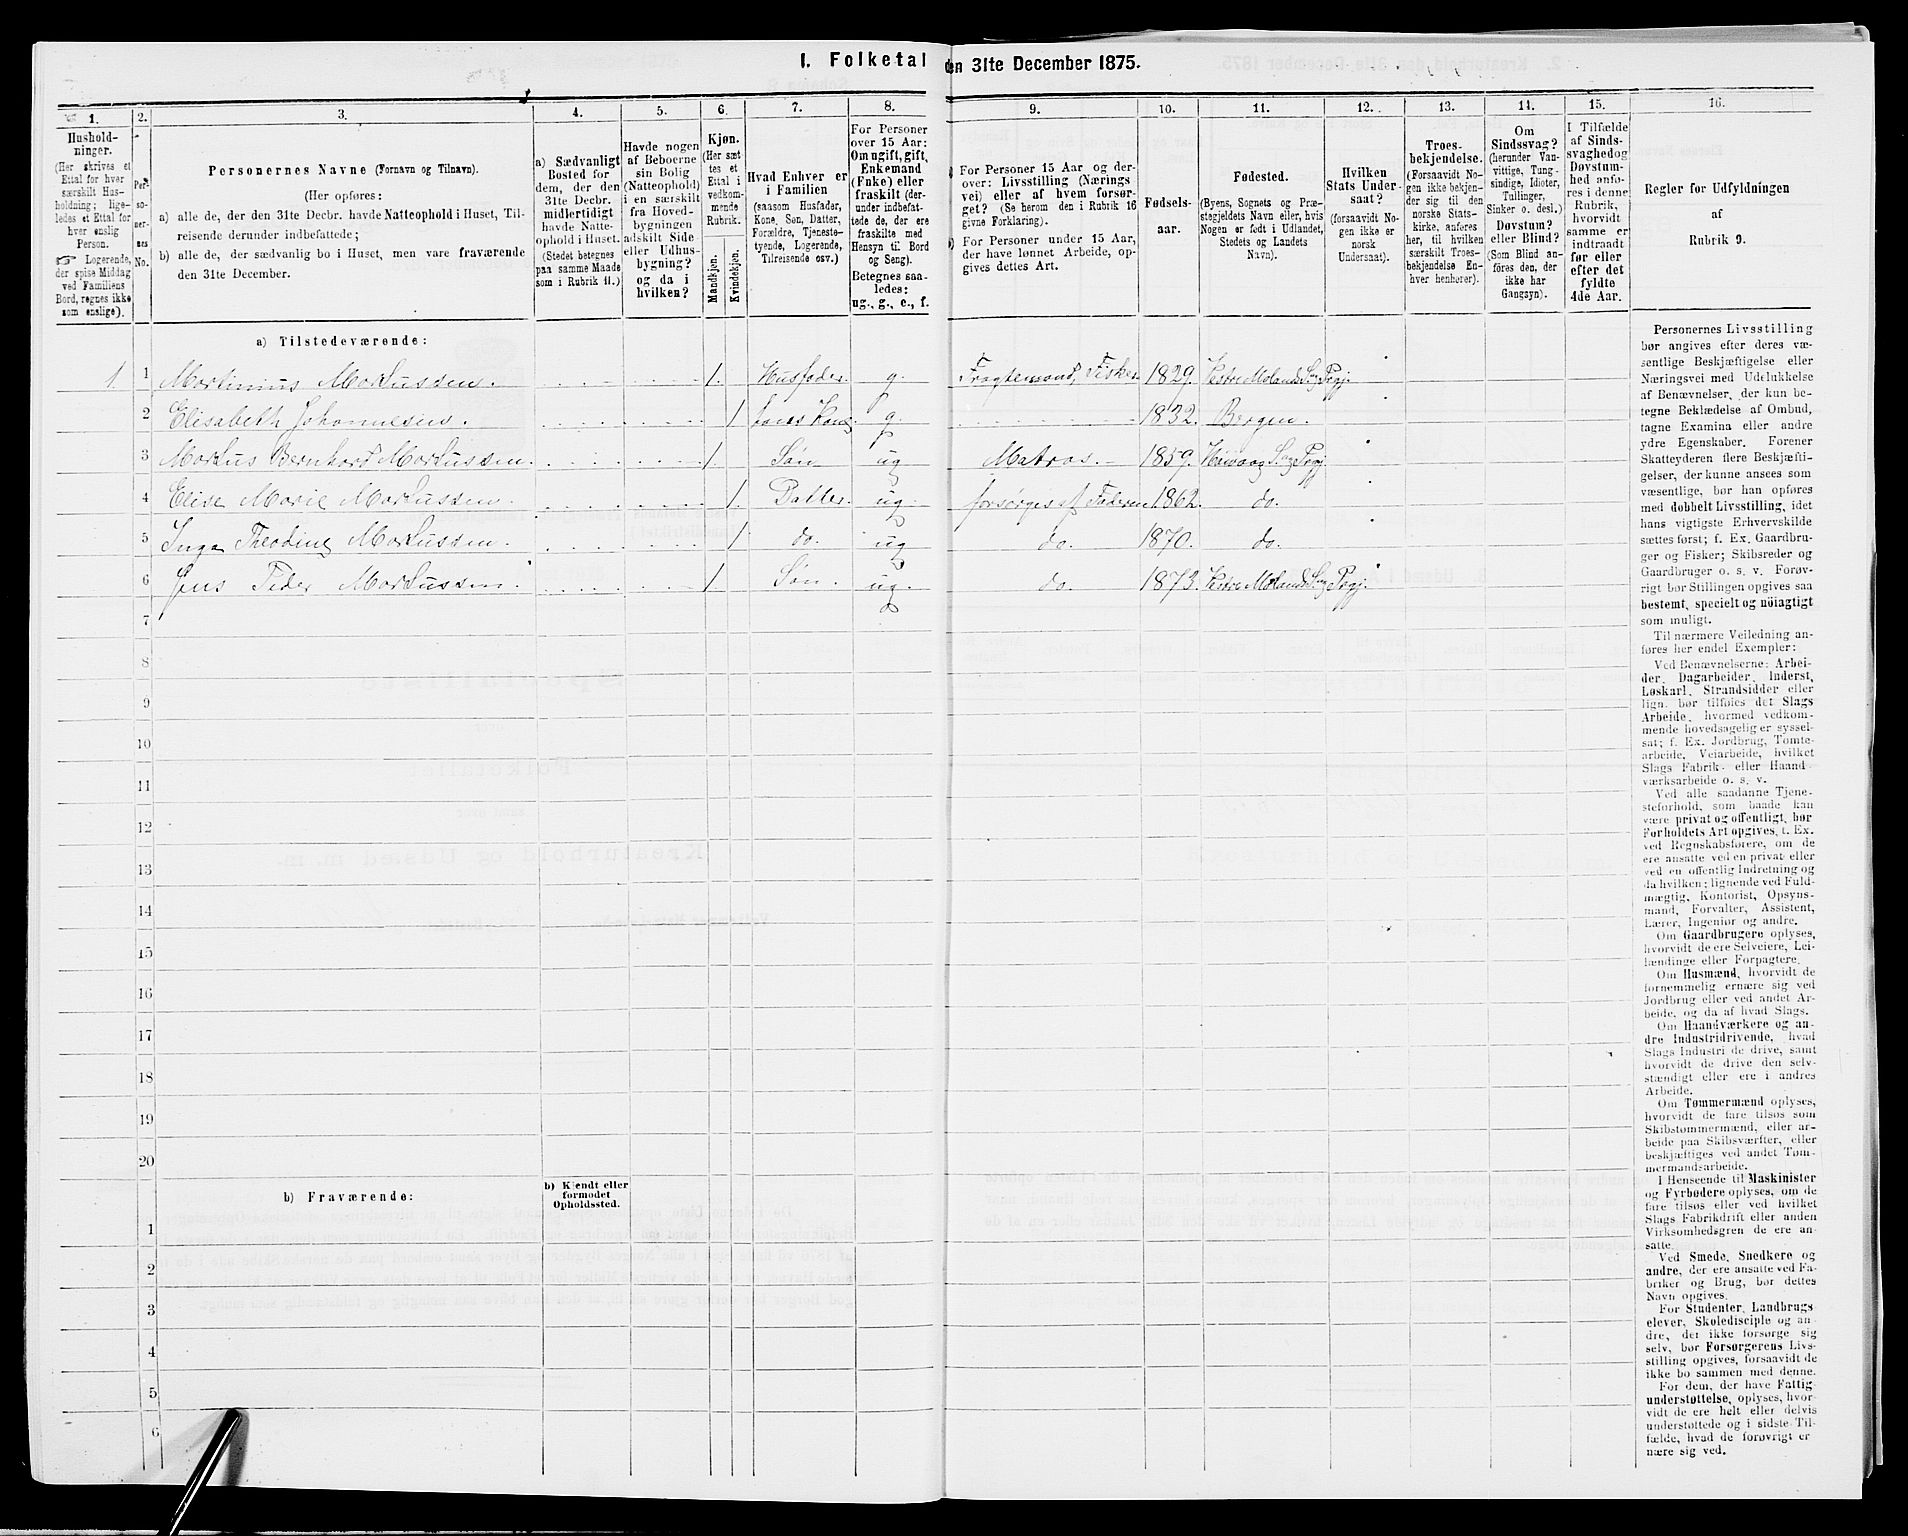 I. Folketal den 31te December 1875.
1.
2.
3.
4.
5.
6.
7.
8.
9.
10.
11.
12.
13.
14.
15.
16.
Hushold-
ninger.
(Her skrives et
Ettal for hver
særskilt Hus-
holdning; lige-
ledes et Ettal for
hver enslig
Person.
☞ Logerende,
der spise Middag
ved Familiens
Bord, regnes ikke
som enslige).
Per-
so-
ner-
nes
No.
Personernes Navne (Fornavn og Tilnavn).
(Her opføres:
a) alle de, der den 31te Decbr. havde Natteophold i Huset, Til-
reisende derunder indbefattede;
b) alle de, der sædvanlig bo i Huset, men vare fraværende
den 31te December.
a) Sædvanligt
Bosted for
dem, der den
31te Decbr.
midlertidigt
havde Natte-
ophold i Huset.
(Stedet betegnes
paa samme Maade
som i Rubrik 11.)
Havde nogen
af Beboerne
sin Bolig
(Natteophold)
i en særskilt
fra Hoved-
bygningen
adskilt Side-
eller Udhus-
bygning?
og da i
hvilken?
Kjøn.
(Her sæt-
tes et
Ettal i
vedkom-
mende
Rubrik.
Mandkjøn.
Kvindekjøn.
Hvad Enhver er
i Familien
(saasom Husfader,
Kone, Søn, Datter,
Forældre, Tjeneste-
tyende, Logerende,
Tilreisende osv.)
For Personer
over 15 Aar:
Om ugift, gift,
Enkemand
(Enke) eller
fraskilt (der-
under indbefat-
tede de, der ere
fraskilte med
Hensyn til Bord
og Seng).
Betegnes saa-
ledes:
ug., g., e., f.
a) For Personer 15 Aar og der-
over: Livsstilling (Nærings
vei) eller af hvem forsør-
get? (Se herom den i Rubrik 16
givne Forklaring).
b) For Personer under 15 Aar,
der have lønnet Arbeide, op-
gives dettes Art.
Fødsels-
aar.
Fødested.
(Byens, Sognets og Præ-
stegjeldets Navn eller, hvis
Nogen er født i Udlandet,
Stedets og Landets
Navn).
Hvilken
Stats Under-
saat?
(forsaavidt No-
gen ikke er
norsk
Undersaat).
Troes-
bekjendelse.
(Forsaavidt No-
gen ikke bekjen-
der sig til den
norske Stats-
kirke, anføres
her, til hvilken
særskilt Troes-
bekjendelse En-
hver henhører).
Om
Sindssvag?
(herunder Van-
vittige, Tung-
sindige, Idioter,
Tullinger,
Sinker o. desl.)
Døvstum?
eller Blind?
(Som Blind an-
føres den, der
ikke har
Gangsyn).
I Tilfælde
af Sinds-
svaghed og
Døvstum-
hed anfø-
res i denne
Rubrik,
hvorvidt
samme er
indtraadt
før eller
efter det
fyldte
4de Aar.
Regler for Udfyldningen
af
Rubrik 9.
a) Tilstedeværende:
1. 1 Martinius Markussen. 1. Husfader g. Fragtemand, Fisker 1829. Vestre Molands Sog Pgj.
2 Elisabeth Johannesen. 1 hans Kone g. 1832. Bergen.
3 Markus Bernhard Markussen. 1. Søn ug Matros. 1859. Høivaag Sog Pgj.
4 Elise Marie Markussen. 1. Datter. ug. forsørges af Faderen 1862. do.
5 Inga Theodine Markussen. 1 do. ug do. 1870. do.
6 Jens Peder Markussen. 1 Søn. ug. do. 1873. Vestre Molands Sog Pgj.
7
8
9
10
11
12
13
14
15
16
17
18
19
20
b) Fraværende:
b) Kjendt eller
formodet
Opholdssted.
1
2
3
4
5
6
Personernes Livsstilling
bør angives efter deres væ-
sentlige Beskjæftigelse eller
Næringsvei med Udelukkelse
af Benævnelser, der kun be-
tegne Beklædelse af Ombud,
tagne Examina eller andre
ydre Egenskaber. Forener
Skatteyderen flere Beskjæfti-
gelser, der kunne ansees som
væsentlige, bør han opføres
med dobbelt Livsstilling, idet
hans vigtigste Erhvervskilde
sættes først; f. Ex. Gaardbru-
ger og Fisker; Skibsreder og
Gaardbruger o. s. v. Forøv-
rigt bør Stillingen opgives saa
bestemt, specielt og nöiagtigt
som muligt.
Til nærmere Veiledning an-
føres her endel Exempler:
Ved Benævnelserne: Arbei-
der, Dagarbeider, Inderst,
Løskarl, Strandsidder eller
lign. bør tilføies det Slags
Arbeide, hvormed vedkom-
mende hovedsagelig er syssel-
sat; f. Ex. Jordbrug, Tomte-
arbeide, Veiarbeide, hvilket
Slags Fabrik- eller Haand-
værksarbeide o. s. v.
Ved alle saadanne Tjene-
steforhold, som baade kan
være privat og offentligt, bør
Forholdets Art opgives, t. Ex.
ved Regnskabsførere, om de
ere ansatte ved en privat eller
ved en offentlig Indretning og
da hvilken; lignende ved Fuld-
mægtig, Kontorist, Opsyns-
mand, Forvalter, Assistent,
Lærer, Ingeniør og andre.
Om Gaardbrugere oplyses,
hvorvidt de ere Selveiere, Lei-
lændinge eller Forpagtere.
Om Husmænd, hvorvidt de
fornemmelig ernære sig ved
Jordbrug eller ved andet Ar-
beide, og da af hvad Slags.
Om Haandværkere og an-
dre Industridrivende, hvad
Slags Industri de drive, samt
hvorvidt de drive den selv-
stændigt eller ere i andres
Arbeide.
Om Tømmermænd oplyses,
hvorvidt de fare tilsøs som
Skibstømmermænd, eller ar-
beide paa Skibsværfter, eller
beskjæftiges ved andet Tøm-
mermandsarbeide.
I Henseende til Maskinister
og Fyrbødere oplyses, om de
fare tilsøs eller ved hvilket
Slags Fabrikdrift eller anden
Virksomhedsgren de ere an-
satte.
Ved Smede, Snedkere og
andre, der ere ansatte ved Fa-
briker og Brug, bør dettes
Navn opgives.
For Studenter, Landbrugs-
elever, Skoledisciple og an-
dre, der ikke forsørge sig
selv, bør Forsørgerens Livs-
stilling opgives, forsaavidt de
ikke bo sammen med denne.
For dem, der have Fattig-
understøttelse, oplyses, hvor-
vidt de ere helt eller delvis
understøttede og i sidste Til-
fælde, hvad de forøvrigt er-
nære sig ved.